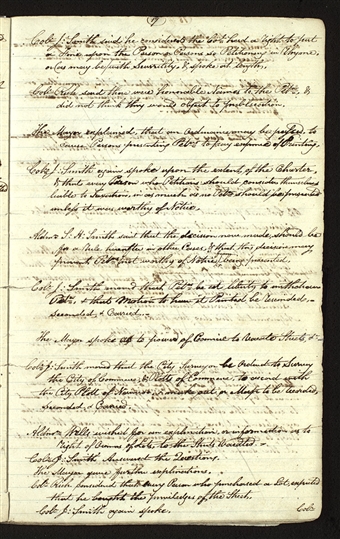 9
Colr. J. Smith said he considered the Col had a right to put
a Fine upon the Person or Persons so Petitioning in Rhyme,
as may be with Severity, & spoke at length,
Colr. Rich said there were honorable names to the Petn. &
did not think they would object to Publication.
The Mayor explained, that an Ordinance may be passed, to
cause Persons presenting Petns. to pay expense of Printing,
Colr. J. Smith again spoke upon the extent of the Charter,
& that every Person who Petitions should consider themselves
liable to Taxation in as much as no Petn. should be presented
unless it was worthy of Notice.
Aldn. S. H. Smith said that the decision now made, should be
for a Rule hereafter in other Cases & that this decision may
prevent Petns. not worthy of Notice being presented.
Colr. J. Smith moved that Petrs. be at liberty to withdraw
Petn. & that Motion to have it Printed be rescinded.
Seconded, & Carried.
The Mayor spoke as to powers of Council to Vacate Streets, &c
Colr. J. Smith moved that the City Surveyor be Ordered to Survey
the City of Commerce, & Plotts of Commerce, to accord with
the City Plott of Nauvoo, & make out a Map to be recorded,
Seconded, & Carried.
Aldn. Wells, wished for an explanation, or information as to
right of Owners of Lots, to the Streets Vacated
Colr. J. Smith Answered the Questions.
The Mayor gave further explanations.
Colr. Rich considered that every Person who purchased a Lot, expected
that he bought the priviledges of the Street.
Colr. J. Smith again spoke.
Colr.